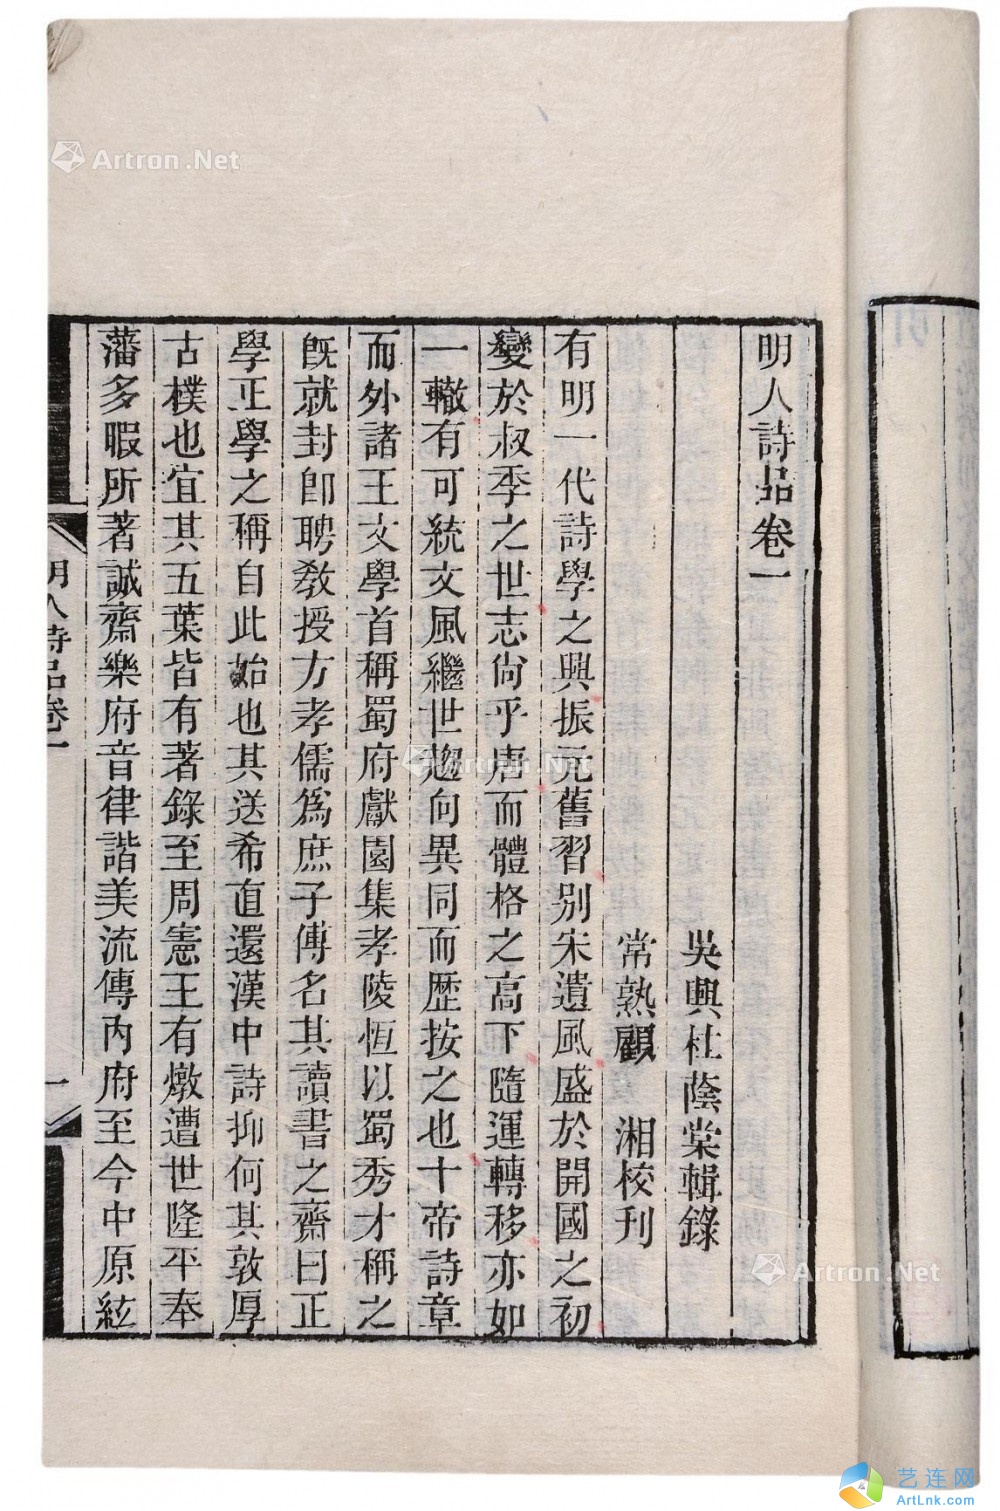 明人詩品卷一
吳興杜蔭棠輯錄
常熟顧 湘校刊
有明一代詩學之興振元舊習別宋遺風盛於開國之初
變於叔季之世志尙乎唐而體格之高下隨運轉移亦如
一轍有可統文風繼世趨向異同而歷按之也十帝詩章
而外諸王文學首稱蜀府獻園集孝陵恒以蜀秀才稱之
旣就封卽聘教授方孝儒爲庶子傅名其讀書之齋曰正
學正學之稱自此始也其送希直還漢中詩抑何其敦厚
古樸也宜其五葉皆有著錄至周憲王有燉遭世隆平奉
藩多暇所著誠齋樂府音律諧美流傳內府至今中原絃
明人詩品卷一
一
Artron.Net
Artron.Net
Artron.Net
艺连网
ArtLnk.com